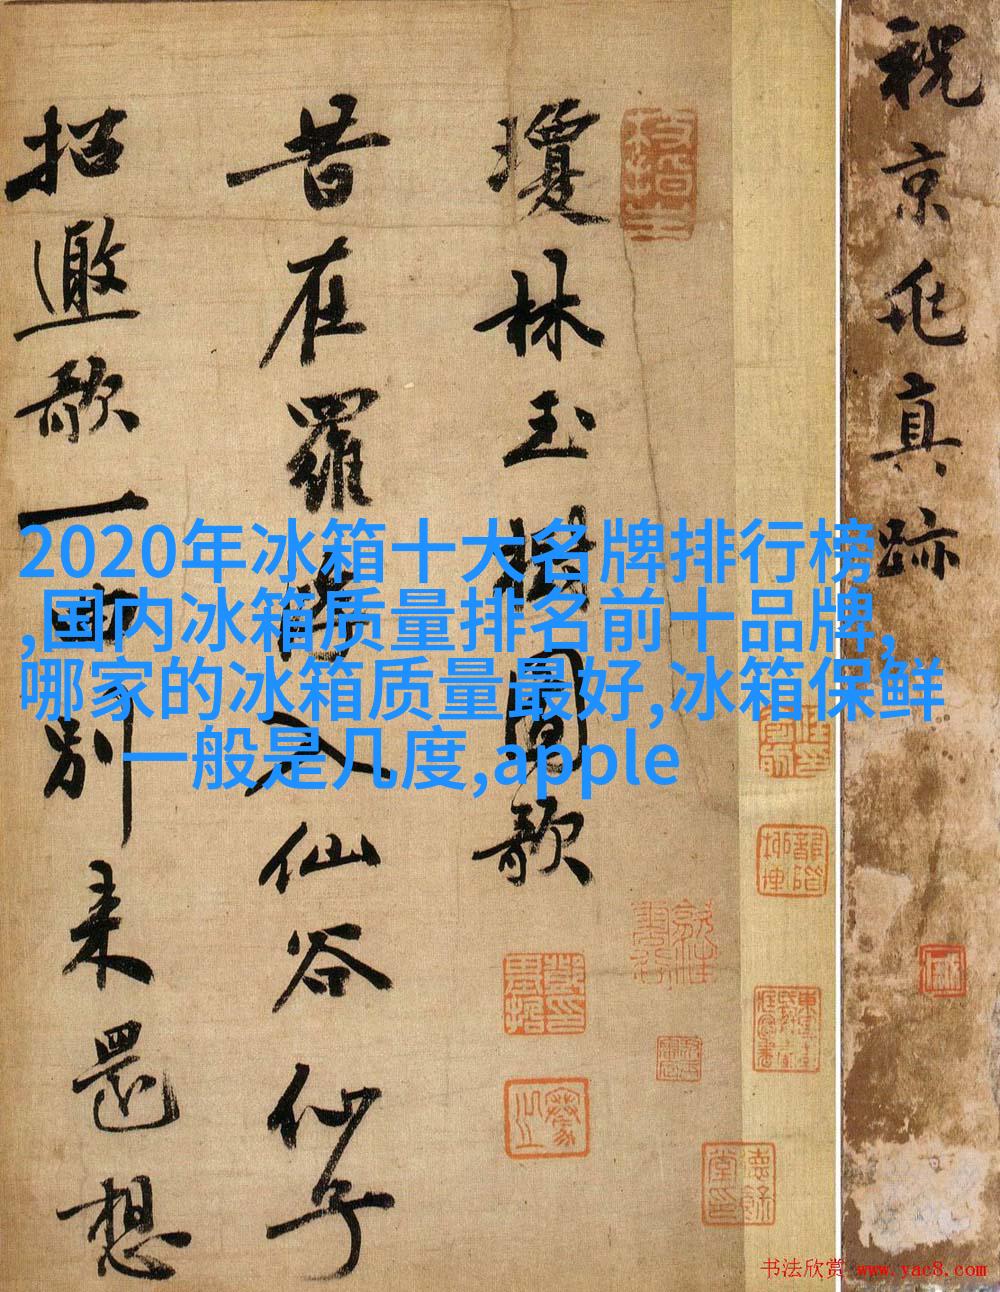 2020年冰箱十大名牌排行榜
,国内冰箱质量排名前十品牌,
哪家的冰箱质量最好,冰箱保鲜
一般是几度,apple
祝京兆真跡
瓊林玉樹圍歌
昔在羅浮入仙谷仙子
招邀歌一曲別来還想
书法欣赏 www.yac8.com